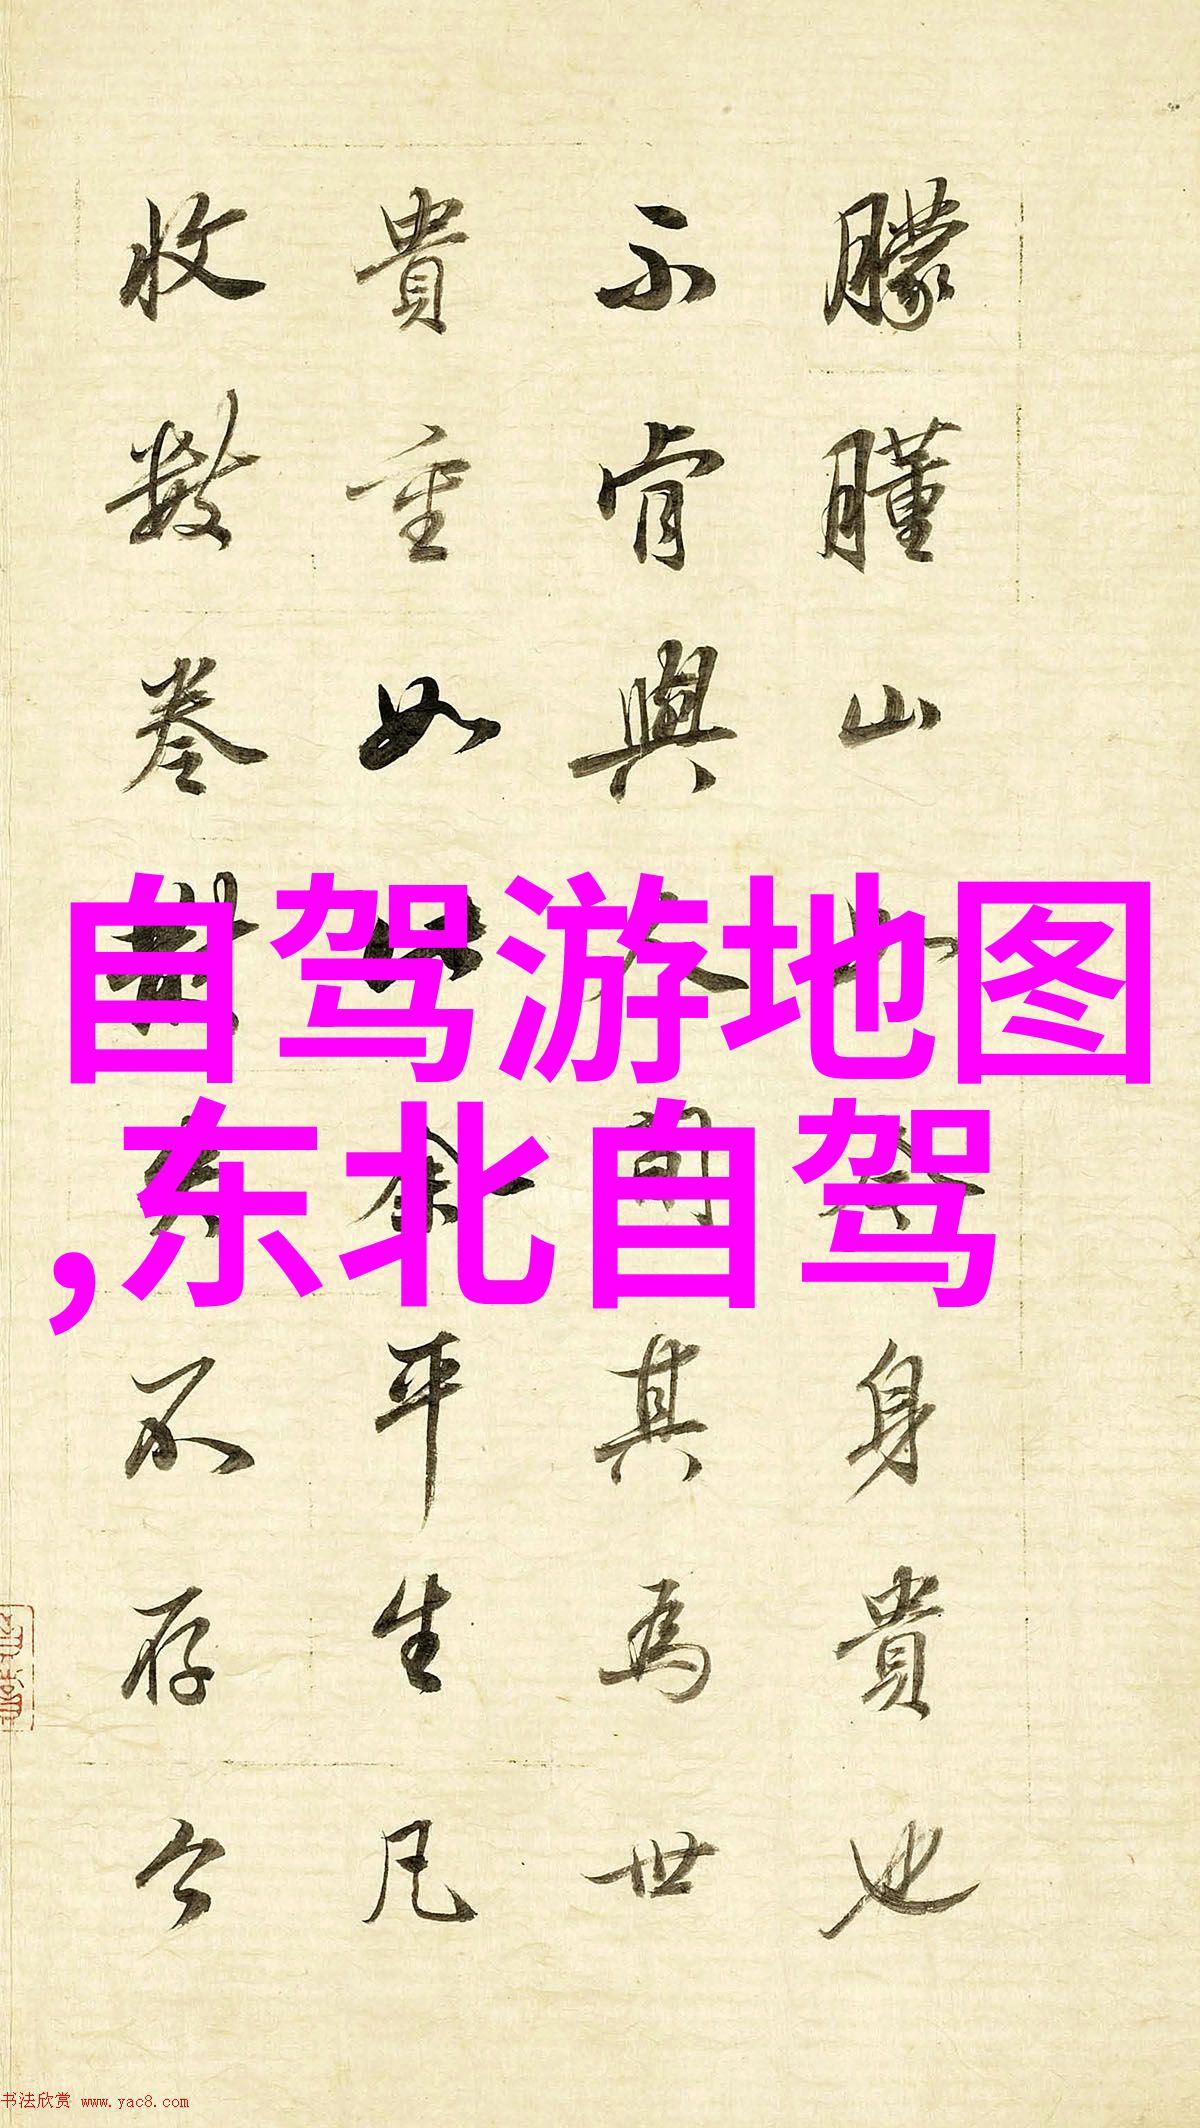 自驾游地图
,东北自驾
朦山身貴也
不肯與其為世
貴重如余平生凡
收數卷不存今
书法欣赏 www.yac8.com